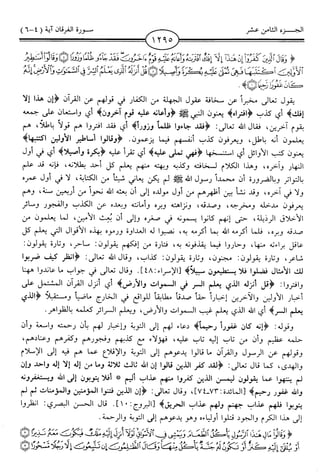 الجزء الثامن عشر
سورة الفرقان آية (٤-٦)
١٢٩٥
﴿وقال الذين كفروا إن هذا إلا إفك افتراه وأعانه عليه قوم آخرون فقد جاءوا ظلما وزورا ۞ وقالوا أساطير
الأولين اكتتبها فهي تملى عليه بكرة وأصيلا ۞ قل أنزله الذي يعلم السر في السموات والأرض إنه
كان غفورا رحيما ۞﴾
يقول تعالى مخبراً عن سخافة عقول الجهلة من الكفار في قولهم عن القرآن ﴿إن هذا إلا
إفك﴾ أي كذب ﴿افتراه﴾ يعنون النبي ﷺ ﴿وأعانه عليه قوم آخرون﴾ أي واستعان على جمعه
بقوم آخرين، فقال الله تعالى: ﴿فقد جاءوا ظلماً وزوراً﴾ أي فقد افتروا هم قولاً باطلاً، هم
يعلمون أنه باطل، ويعرفون كذب أنفسهم فيما يزعمون. ﴿وقالوا أساطير الأولين اكتتبها﴾
يعنون كتب الأوائل أي استنسخها ﴿فهي تملى عليه﴾ أي تقرأ عليه ﴿بكرة وأصيلاً﴾ أي في أول
النهار وآخره، وهذا الكلام لسخافته وكذبه وبهته منهم يعلم كل أحد بطلانه، فإنه قد علم
بالتواتر وبالضرورة أن محمداً رسول الله ﷺ لم يكن يعاني شيئاً من الكتابة، لا في أول عمره
ولا في آخره، وقد نشأ بين أظهرهم من أول مولده إلى أن بعثه الله نحواً من أربعين سنة، وهم
يعرفون مدخله ومخرجه، وصدقه، ونزاهته وبره وأمانته وبعده عن الكذب والفجور وسائر
الأخلاق الرذيلة، حتى إنهم كانوا يسمونه في صغره وإلى أن بُعث الأمين، لما يعلمون من
صدقه وبره، فلما أكرمه الله بما أكرمه به، نصبوا له العداوة ورموه بهذه الأقوال التي يعلم كل
عاقل براءته منها، وحاروا فيما يقذفونه به، فتارة من إفكهم يقولون: ساحر، وتارة يقولون:
شاعر، وتارة يقولون: مجنون، وتارة يقولون: كذاب، وقال الله تعالى: ﴿انظر كيف ضربوا
لك الأمثال فضلوا فلا يستطيعون سبيلاً﴾ [الإسراء:٤٨]. وقال تعالى في جواب ما عاندوا ههنا
وافتروا: ﴿قل أنزله الذي يعلم السر في السموات والأرض﴾ أي أنزل القرآن المشتمل على
أخبار الأولين والآخرين إخباراً حقاً صدقاً مطابقاً للواقع في الخارج ماضياً ومستقبلاً ﴿الذي
يعلم السر﴾ أي الله الذي يعلم غيب السموات والأرض، ويعلم السرائر كعلمه بالظواهر.
وقوله: ﴿إنه كان غفوراً رحيماً﴾ دعاء لهم إلى التوبة وإخبار لهم بأن رحمته واسعة وأن
حلمه عظيم وأن من تاب إليه تاب عليه، فهؤلاء مع كذبهم وفجورهم وكفرهم وعنادهم،
وقولهم عن الرسول والقرآن ما قالوا يدعوهم إلى التوبة والإقلاع عما هم فيه إلى الإسلام
والهدى، كما قال تعالى: ﴿لقد كفر الذين قالوا إن الله ثالث ثلاثة وما من إله إلا إله واحد وإن
لم ينتهوا عما يقولون ليمسن الذين كفروا منهم عذاب أليم * أفلا يتوبون إلى الله ويستغفرونه
والله غفور رحيم﴾ [المائدة:٧٣-٧٤]، وقال تعالى: ﴿إن الذين فتنوا المؤمنين والمؤمنات ثم لم
يتوبوا فلهم عذاب جهنم ولهم عذاب الحريق﴾ [البروج:١٠]. قال الحسن البصري: انظروا
إلى هذا الكرم والجود قتلوا أولياءه وهو يدعوهم إلى التوبة والرحمة.